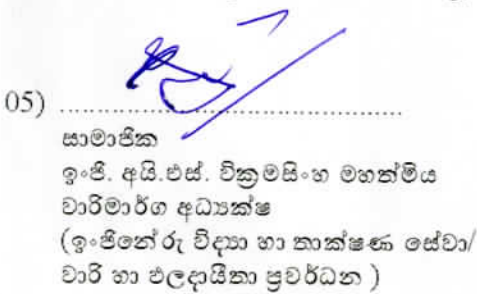 05) ........................................
සාමාජික
ඉංජි. අයි.එස්. වික්‍රමසිංහ මහත්මිය
වාරිමාර්ග අධ්‍යක්ෂ
(ඉංජිනේරු විද්‍යා හා තාක්ෂණ සේවා/
වාරි හා ඵලදායීතා ප්‍රවර්ධන )